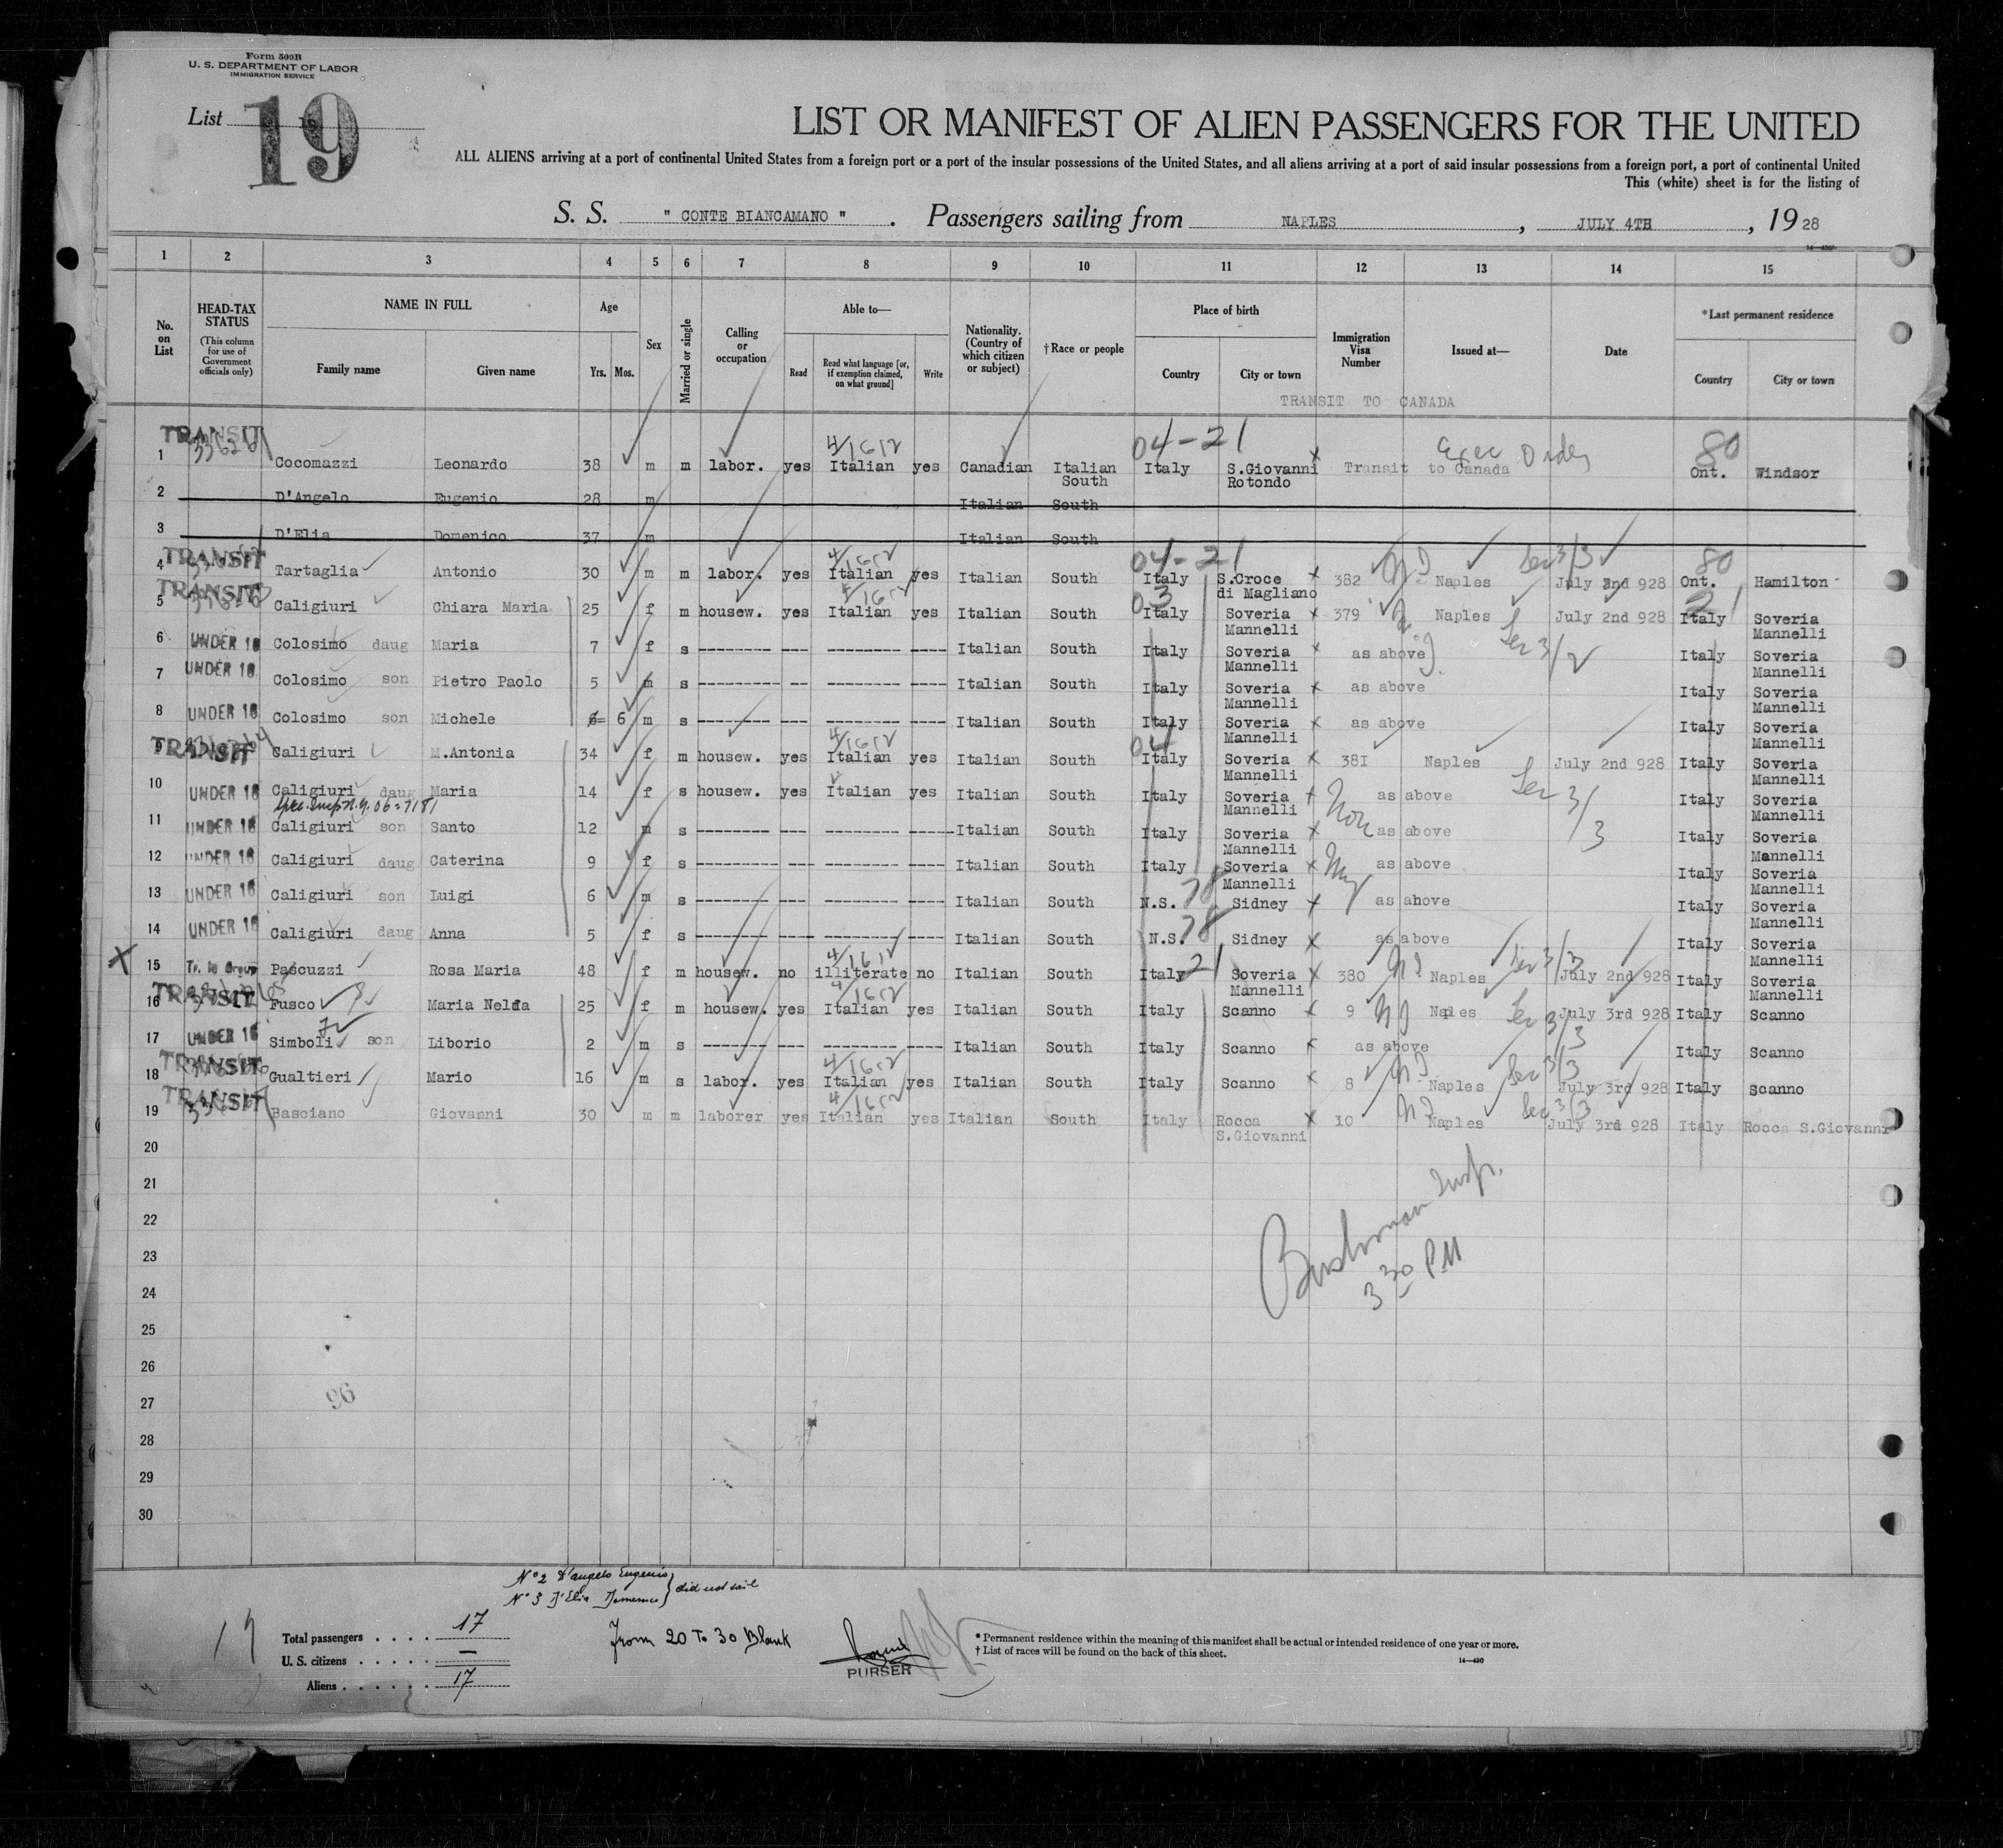 Form 500B
U. S. DEPARTMENT OF LABOR
IMMIGRATION SERVICE
List 19
LIST OR MANIFEST OF ALIEN PASSENGERS FOR THE UNITED
ALL ALIENS arriving at a port of continental United States from a foreign port or a port of the insular possessions of the United States, and all aliens arriving at a port of said insular possessions from a foreign port, a port of continental United
This (white) sheet is for the listing of
S. S. " CONTE BIANCAMANO " . Passengers sailing from NAPLES , JULY 4TH , 19 28
1 2 3 4 5 6 7 8 9 10 11 12 13 14 15
No. on List
HEAD-TAX STATUS (This column for use of Government officials only)
NAME IN FULL
Family name Given name
Age
Yrs. Mos.
Sex
Married or single
Calling or occupation
Able to—
Read Read what language [or, if exemption claimed, on what ground] Write
Nationality. (Country of which citizen or subject)
†Race or people
Place of birth
Country City or town
Immigration Visa Number
Issued at—
Date
*Last permanent residence
Country City or town
TRANSIT TO CANADA
TRANSIT 4/1612 04-21 Exec Order 80
1 Cocomazzi Leonardo 38 m m labor. yes Italian yes Canadian Italian South Italy S.Giovanni Rotondo x Transit to Canada Ont. Windsor
2 D'Angelo Eugenio 28 m Italian South
3 D'Elia Domenico 37 m Italian South
TRANSIT 4/1612 04-21 80
4 Tartaglia Antonio 30 m m labor. yes Italian yes Italian South Italy S.Croce di Magliano x 382 Naples July 2nd 928 Ont. Hamilton
TRANSIT 4/1612 03 21
5 Caligiuri Chiara Maria 25 f m housew. yes Italian yes Italian South Italy Soveria Mannelli x 379 Naples July 2nd 928 Italy Soveria Mannelli
6 UNDER 16 Colosimo daug Maria 7 f s Italian South Italy Soveria Mannelli x as above Italy Soveria Mannelli
7 UNDER 16 Colosimo son Pietro Paolo 5 m s Italian South Italy Soveria Mannelli x as above Italy Soveria Mannelli
8 UNDER 16 Colosimo son Michele 6 m s Italian South Italy Soveria Mannelli x as above Italy Soveria Mannelli
TRANSIT 4/1612 04
9 Caligiuri M.Antonia 34 f m housew. yes Italian yes Italian South Italy Soveria Mannelli x 381 Naples July 2nd 928 Italy Soveria Mannelli
10 UNDER 16 Caligiuri daug Maria 14 f s housew. yes Italian yes Italian South Italy Soveria Mannelli as above Italy Soveria Mannelli
11 UNDER 16 Caligiuri son Santo 12 m s Italian South Italy Soveria Mannelli x as above Italy Soveria Mannelli
12 UNDER 16 Caligiuri daug Caterina 9 f s Italian South Italy Soveria Mannelli x as above Italy Soveria Mannelli
13 UNDER 16 Caligiuri son Luigi 6 m s Italian South N.S. 78 Sidney x as above Italy Soveria Mannelli
14 UNDER 16 Caligiuri daug Anna 5 f s Italian South N.S. 78 Sidney x as above Italy Soveria Mannelli
X 15 Pascuzzi Rosa Maria 48 f m housew. no 4/1612 illiterate no Italian South Italy 21 Soveria Mannelli x 380 Naples July 2nd 928 Italy Soveria Mannelli
TRANSIT 4/1612
16 Fusco Maria Nelda 25 f m housew. yes Italian yes Italian South Italy Scanno x 9 Naples July 3rd 928 Italy Scanno
17 UNDER 16 Simboli son Liborio 2 m s Italian South Italy Scanno x as above Italy Scanno
TRANSIT 4/1612
18 Gualtieri Mario 16 m s labor. yes Italian yes Italian South Italy Scanno x 8 Naples July 3rd 928 Italy Scanno
TRANSIT 4/1612
19 Basciano Giovanni 30 m m laborer yes Italian yes Italian South Italy Rocca S.Giovanni x 10 Naples July 3rd 928 Italy Rocca S.Giovanni
20
21
22
23
24
25
26
27
28
29
30
Insp.
3 30 P.M
96
No 2 D'angelo Eugenio
No 3 D'Elia Domenico } did not sail
Total passengers . . . . 17
U. S. citizens . . . . . —
Aliens . . . . . . 17
From 20 To 30 Blank
PURSER
* Permanent residence within the meaning of this manifest shall be actual or intended residence of one year or more.
† List of races will be found on the back of this sheet.
14—430